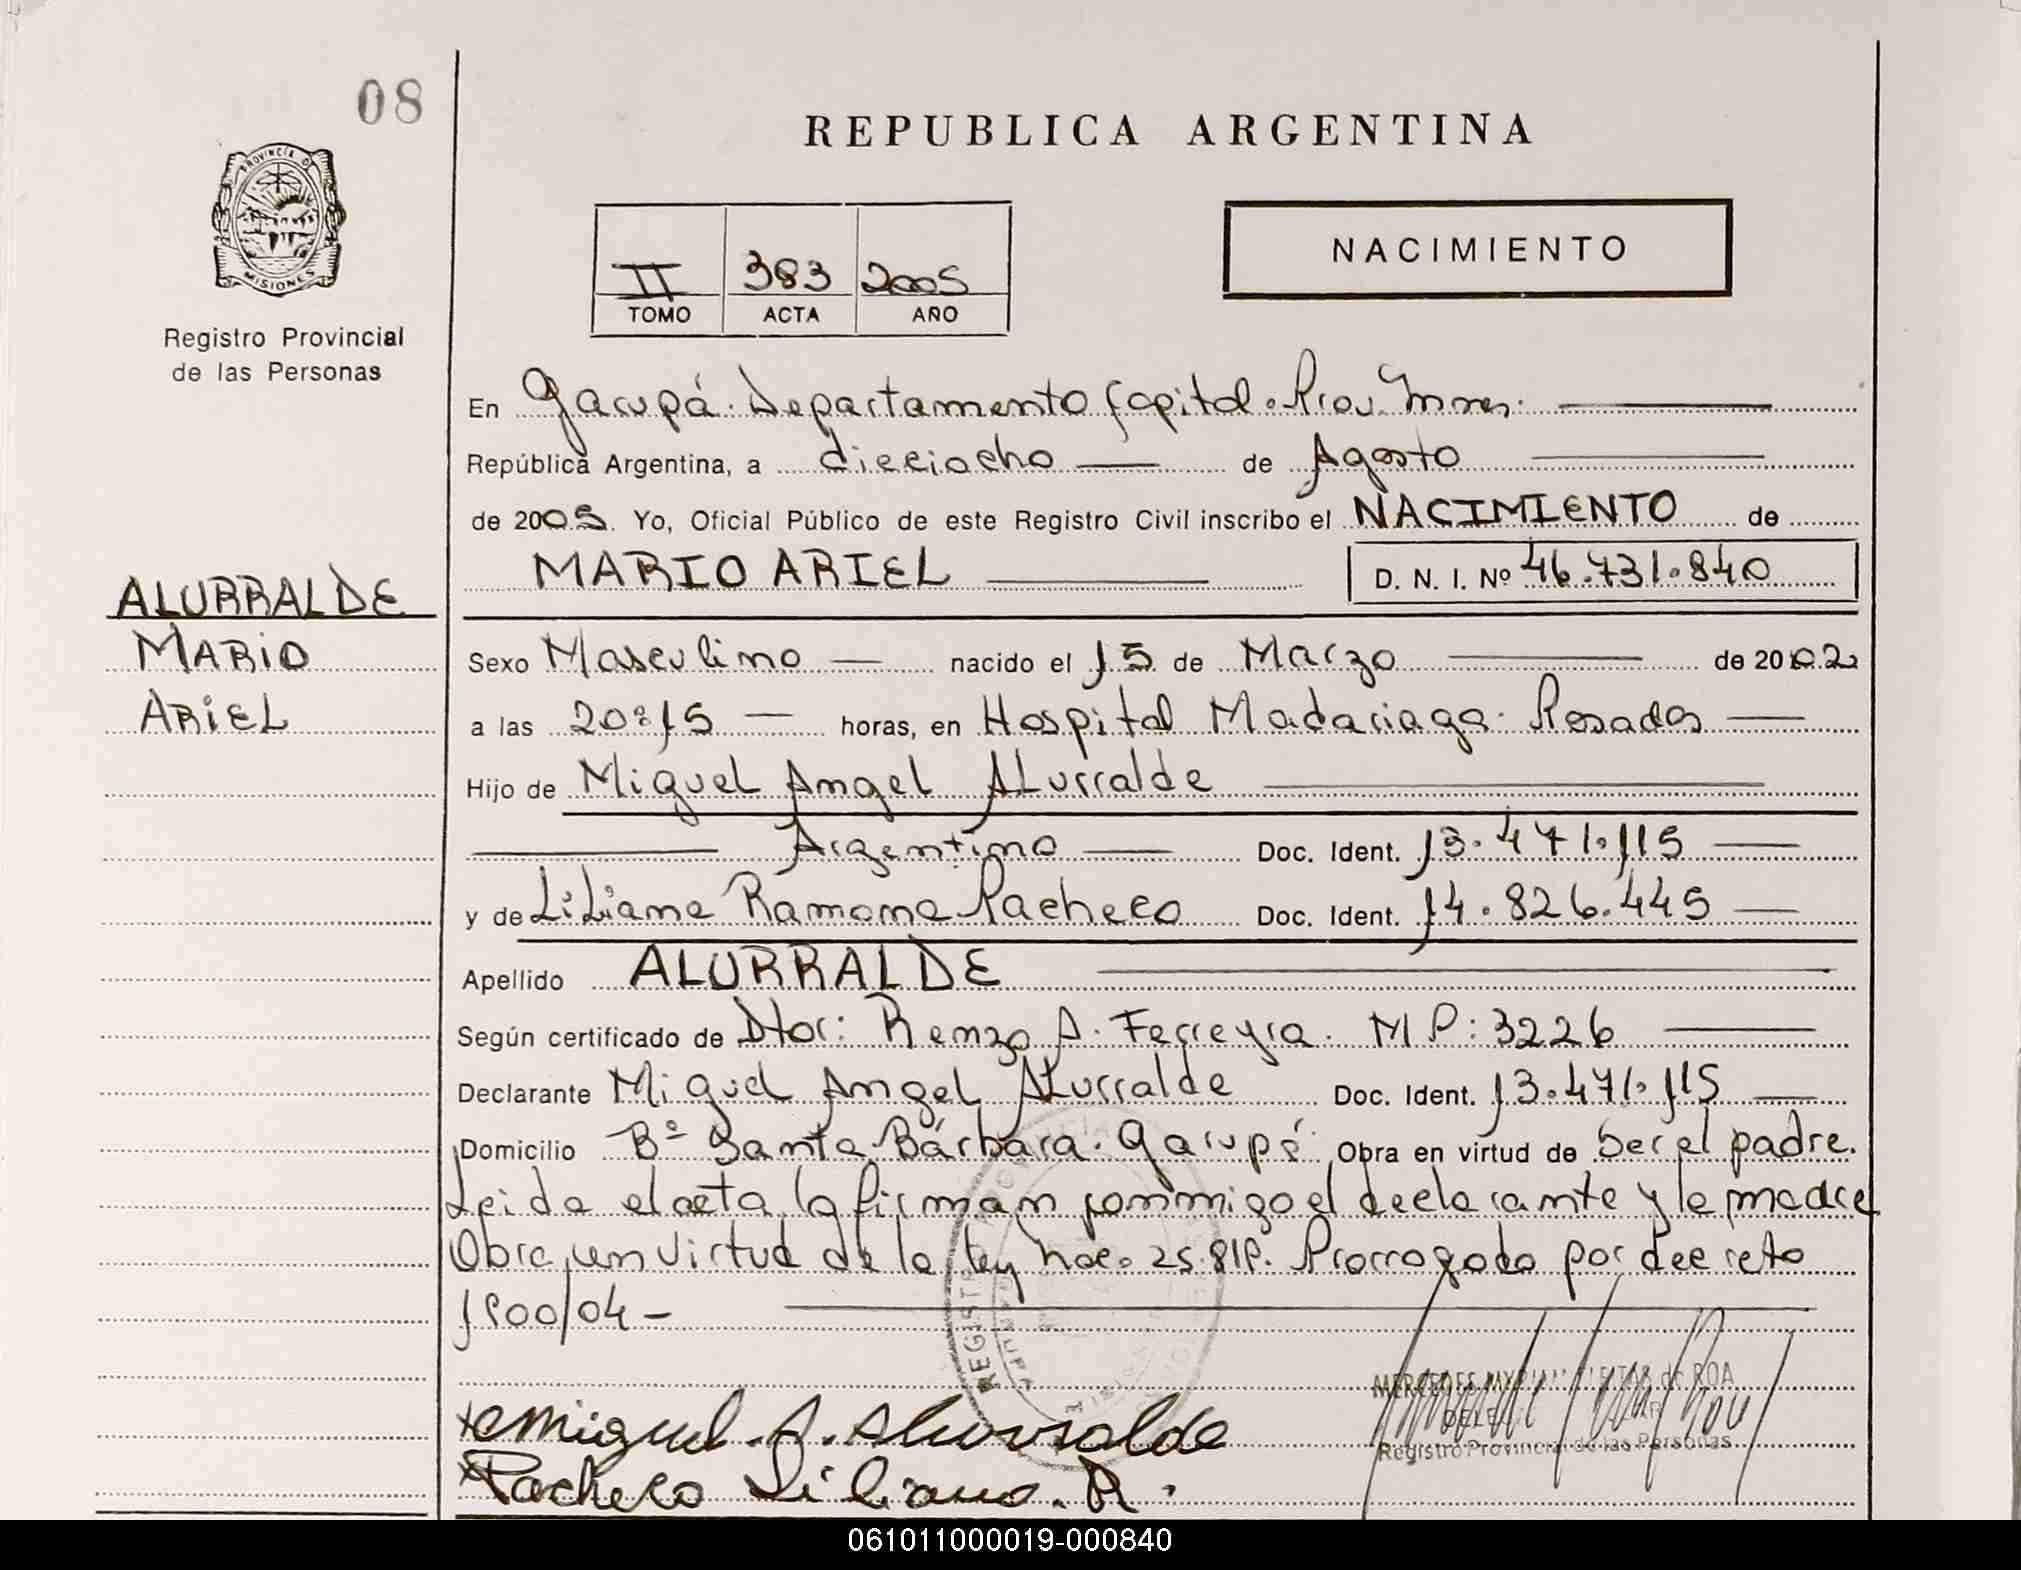 08
REPUBLICA ARGENTINA
PROVINCIA D
MISIONES
Registro Provincial
de las Personas
II 383 2005
TOMO ACTA AÑO
NACIMIENTO
En Garupá. Departamento Capital. Prov. Mnes.
República Argentina, a dieciocho de Agosto
de 2005. Yo, Oficial Público de este Registro Civil inscribo el NACIMIENTO de
MARIO ARIEL D. N. I. Nº 46.731.840
ALURRALDE
MARIO
ARIEL
Sexo Masculino nacido el 15 de Marzo de 2002
a las 20:15 horas, en Hospital Madariaga. Posadas
Hijo de Miguel Angel ALurralde
Argentino Doc. Ident. 13.471.115
y de LiLiana Ramona Pacheco Doc. Ident. 14.826.445
Apellido ALURRALDE
Según certificado de Dtor: Renzo A. Ferreyra. MP: 3226
Declarante Miguel Angel ALurralde Doc. Ident. 13.471.115
Domicilio Bº Santa Bárbara. Garupá Obra en virtud de Ser el padre.
Leida el acta la firman conmigo el declarante y la madre
Obra en virtud de la ley nac. 25.819. Prorrogada por decreto
1900/04 -
Miguel . A . Alurralde
Pacheco Liliana . R .
MERCEDES de ROA
Registro Provincial de las Personas
061011000019-000840